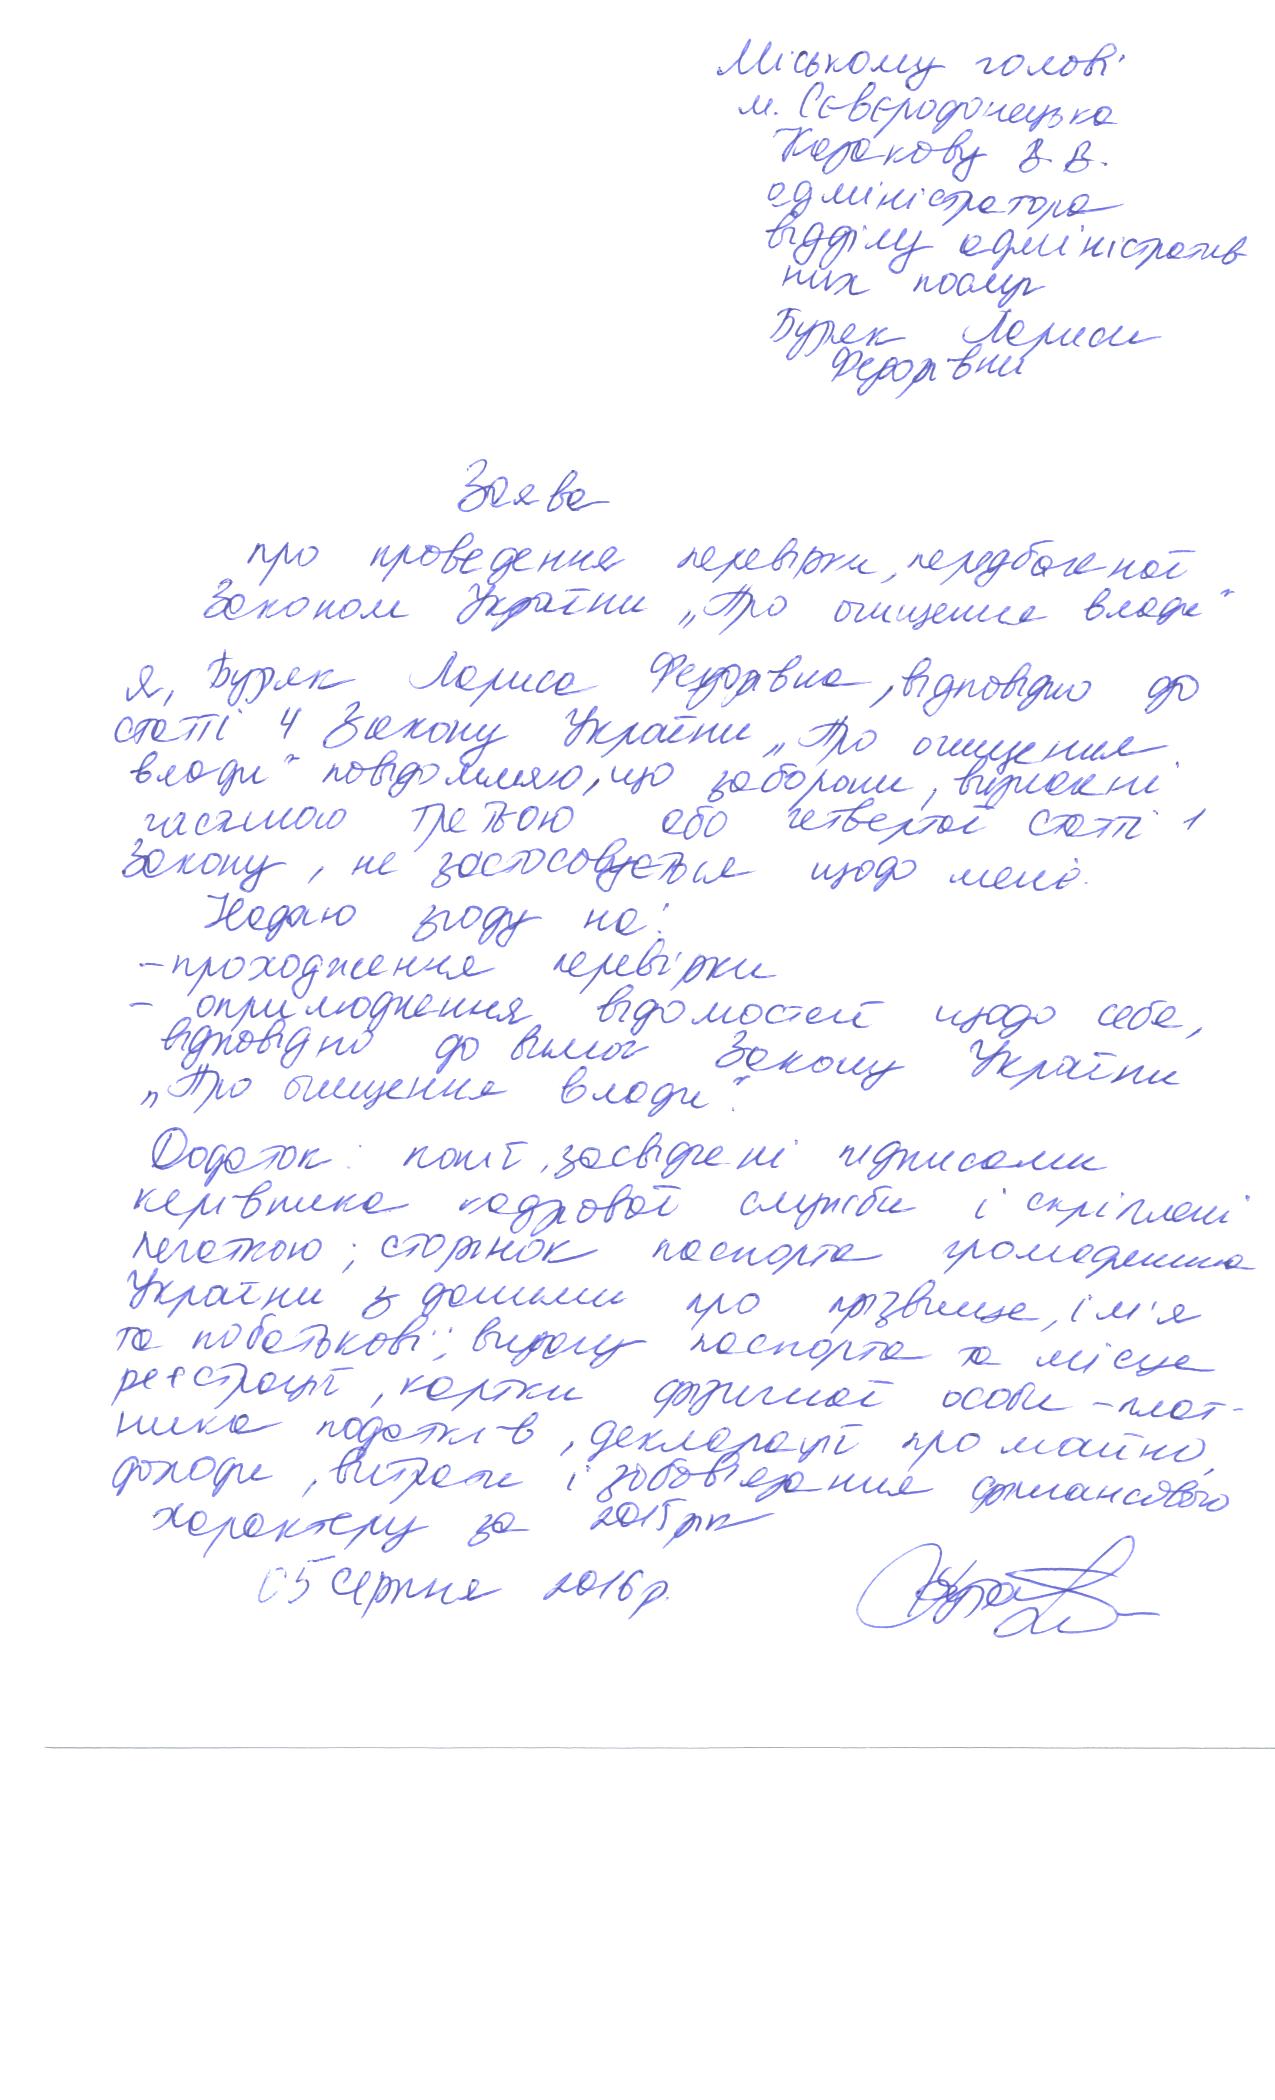 Міському голові
м. Сєвєродонецька
Казакову В.В.
адміністратора
відділу адміністратив
них послуг
Буряк Лариси
Федорівни
Заява
про проведення перевірки, передбаченої
Законом України „Про очищення влади"
Я, Буряк Лариса Федорівна, відповідно до
статті 4 Закону України „Про очищення
влади" повідомляю, що заборони, визначені
частиною третьою або четвертої статті 1
Закону, не застосовується щодо мене.
Надаю згоду на:
- проходження перевірки
- оприлюднення відомостей щодо себе,
відповідно до вимог Закону України
„Про очищення влади".
Додаток: копії, засвідчені підписами
керівника кадрової служби і скріплені
печаткою; сторінок паспорта громадянина
України з даними про прізвище, ім'я
та побатькові; видачу паспорта та місце
реєстрації, картки фізичної особи - плат-
ника податків, декларації про майно,
доходи, витрати і зобов'язання фінансового
характеру за 2015 рік
05 серпня 2016 р.